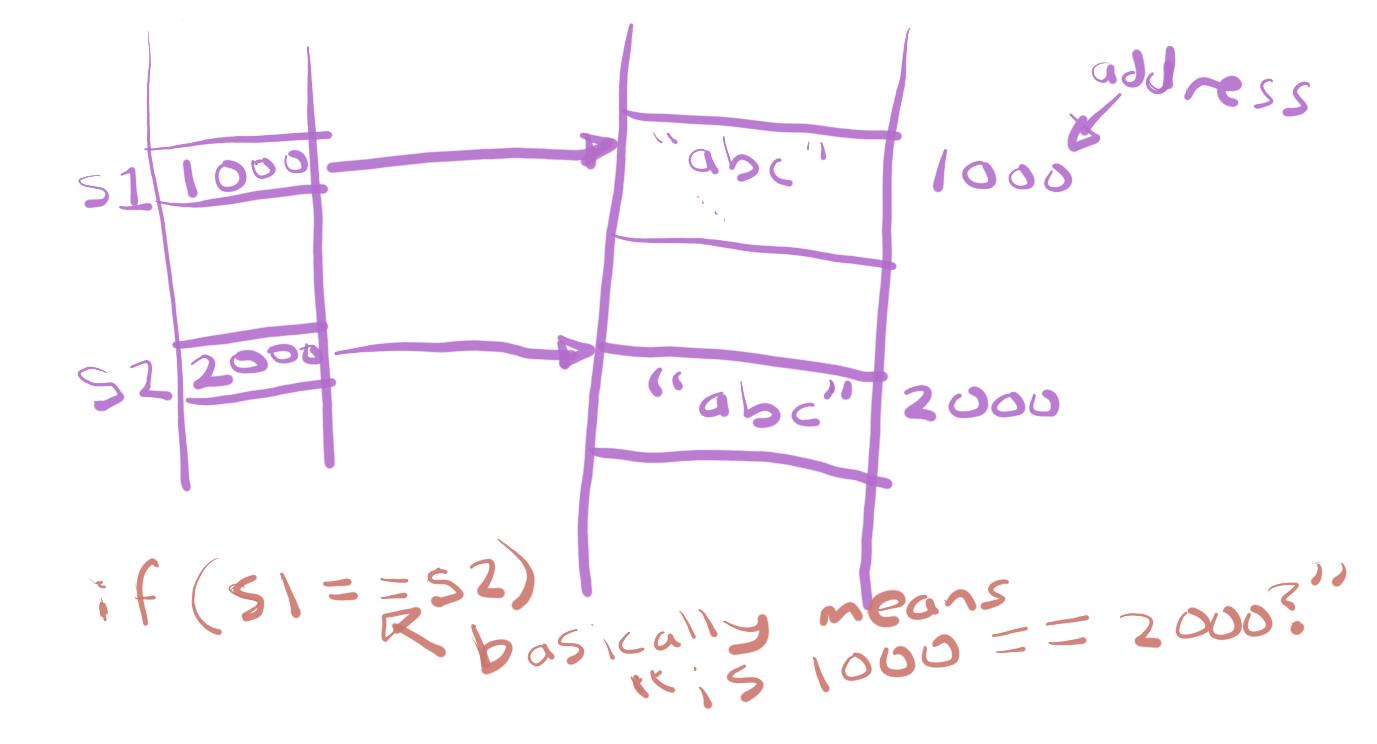 address
S1 1000 "abc" 1000
S2 2000 "abc" 2000
if (S1 == S2)
basically means
"is 1000 == 2000?"